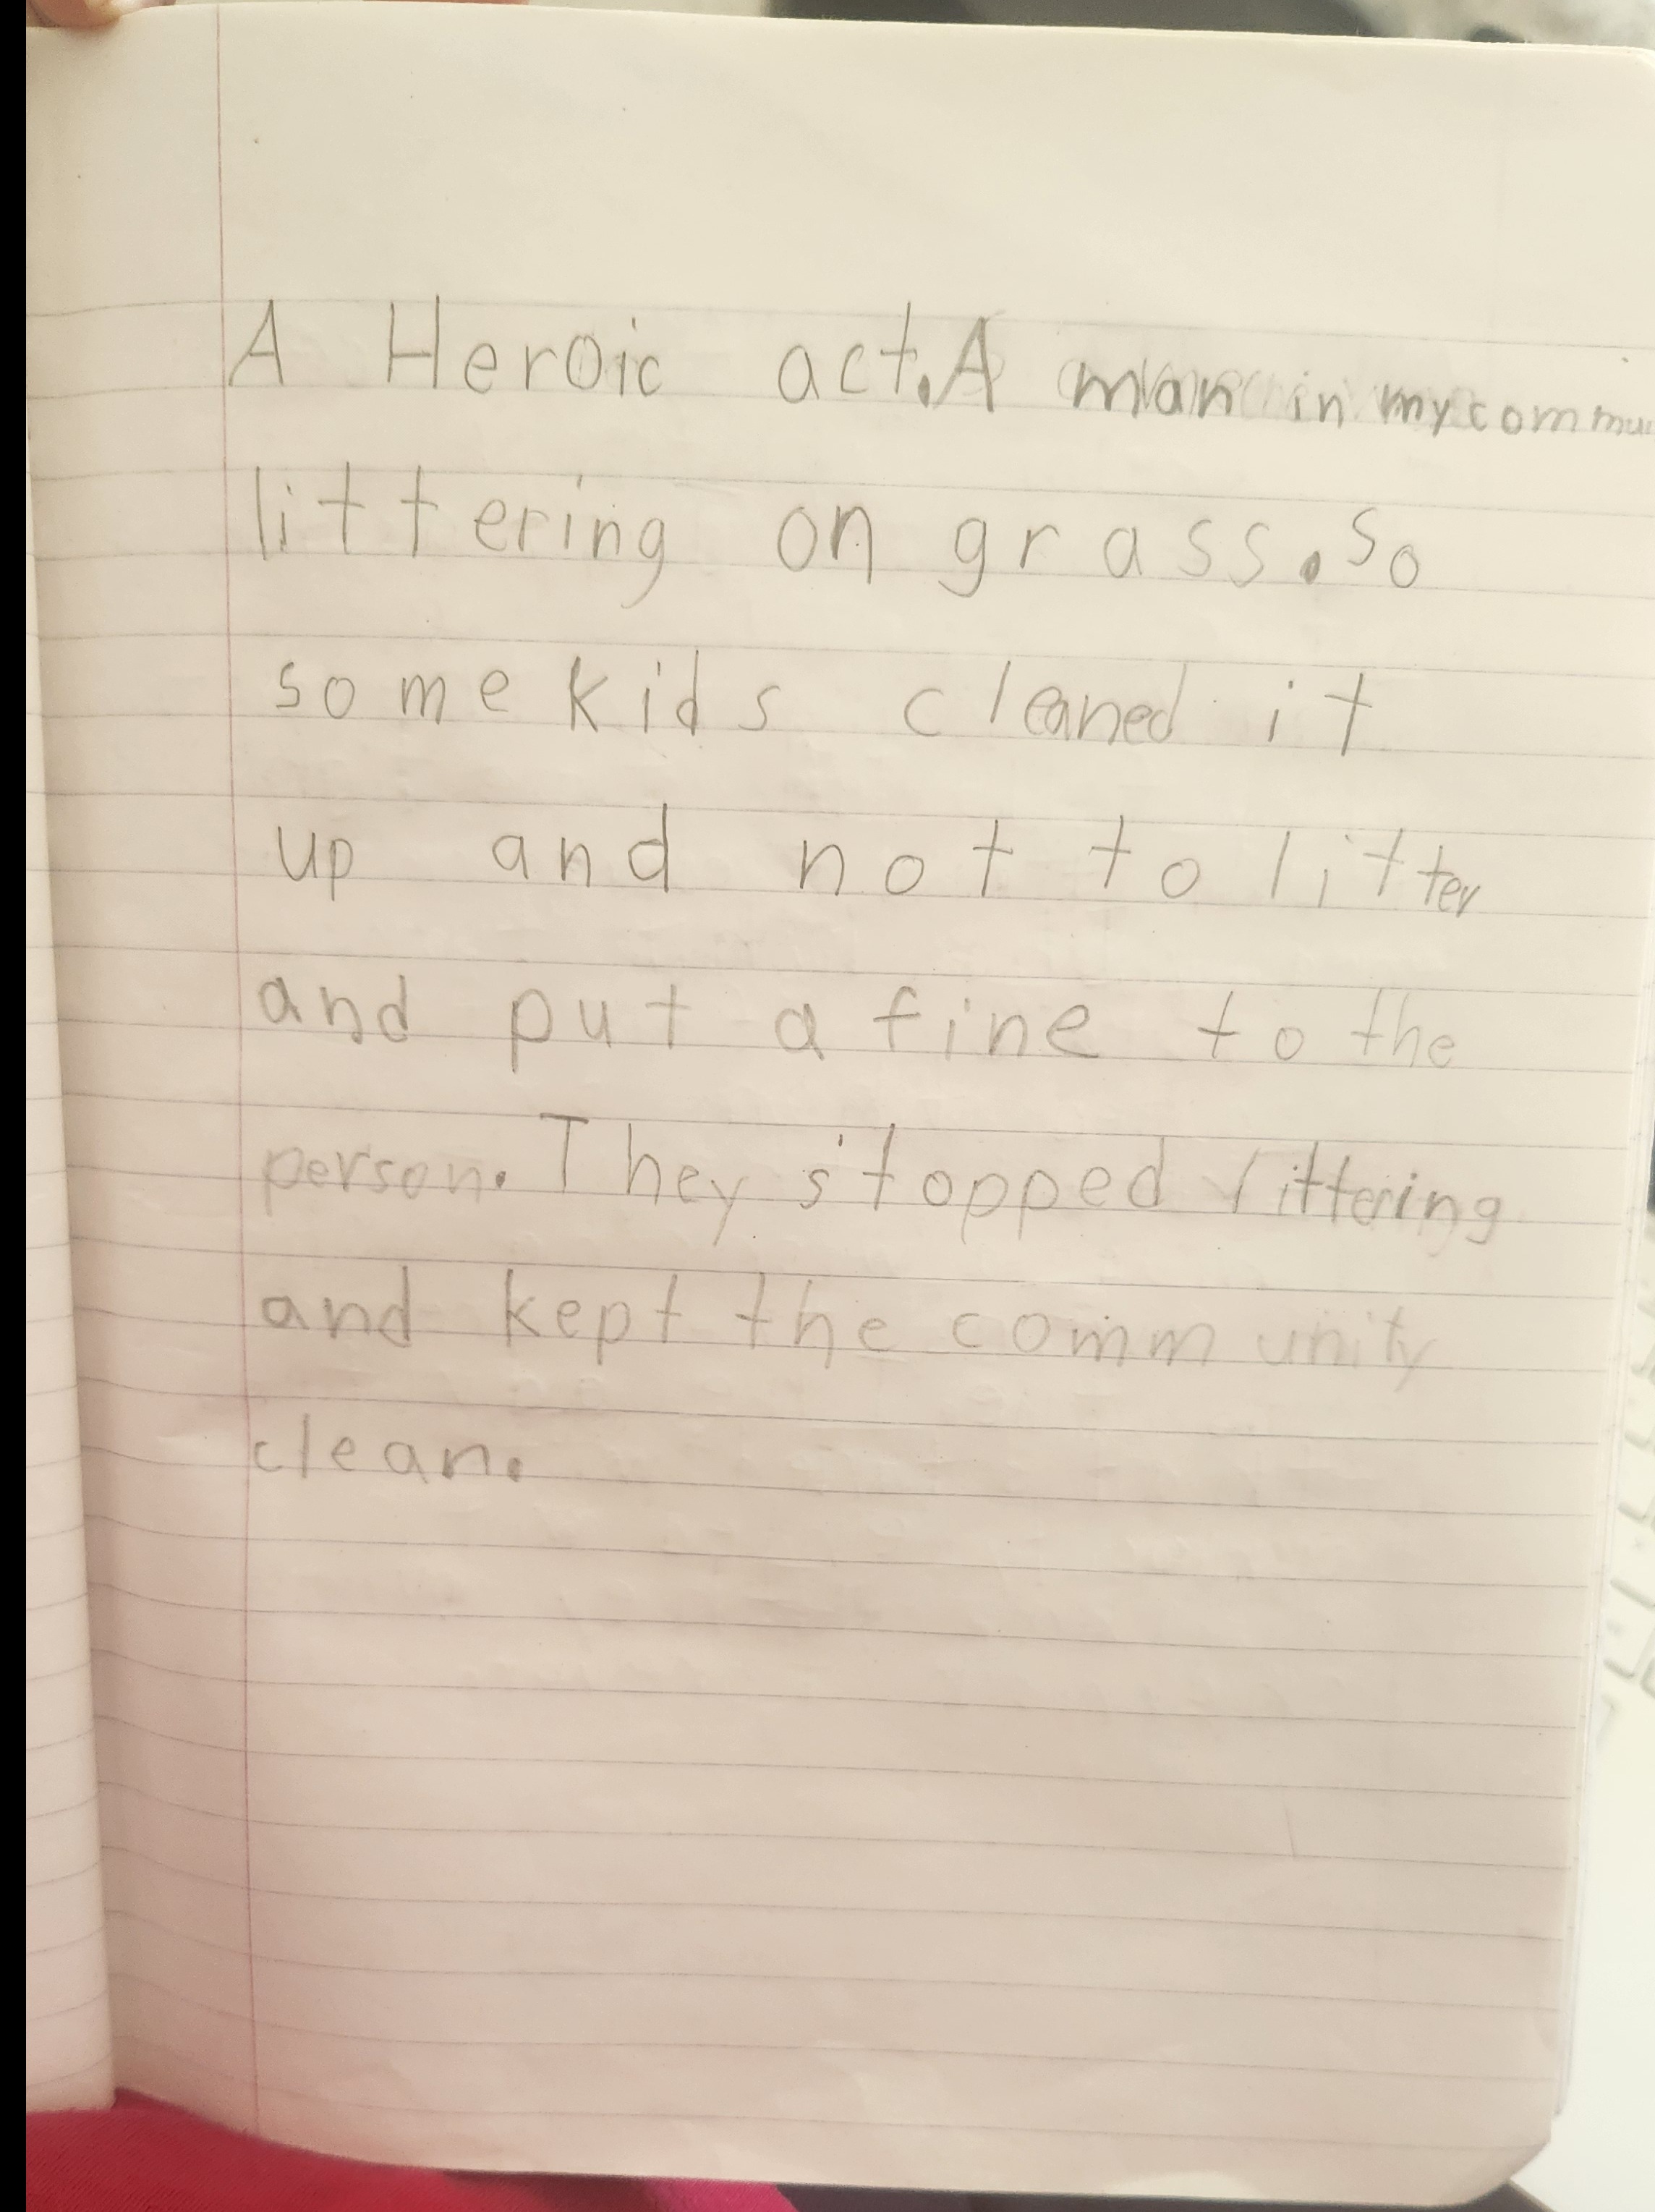 A Heroic act. A man in my commu
littering on grass. so
some kids cleaned it
up and not to litter
and put a fine to the
person. They stopped littering
and kept the community
clean.